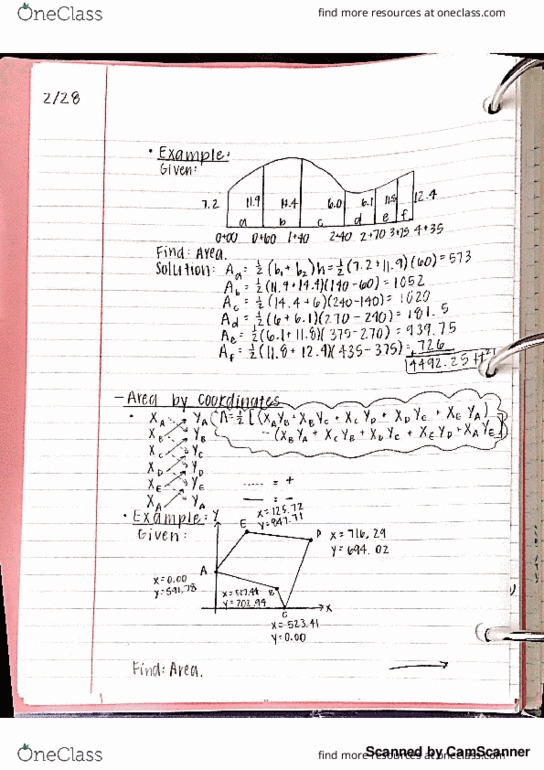 OneClass
find more resources at oneclass.com
2/28
• Example:
Given:
7.2 11.9 14.4 6.0 6.1 11.8 12.4
a b c d e f
0+00 0+60 1+40 2+40 2+70 3+75 4+35
Find: Area.
Solution: Aa = ½(b₁ + b₂)h = ½(7.2+11.9)(60) = 573
Ab = ½(11.9+14.4)(140-60) = 1052
Ac = ½(14.4+6)(240-140) = 1020
Ad = ½(6+6.1)(270-240) = 181.5
Ae = ½(6.1+11.8)(375-270) = 939.75
Af = ½(11.8+12.4)(435-375) = 726
4492.25 ft²
- Area by coordinates
• XA YA A = ½[(XAYB + XBYC + XCYD + XDYE + XEYA)
XB YB - (XBYA + XCYB + XDYC + XEYD + XAYE)]
XC YC
XD YD
XE YE
XA YA
---- = +
— = -
• Example:
Given:
Y
E
X=125.72
Y=847.71
D
X=716.29
Y=694.02
A
X=0.00
Y=591.78
B
Y=202.94
X
C
X=523.41
Y=0.00
Find: Area.
OneClass
find more resources at oneclass.com
Scanned by CamScanner